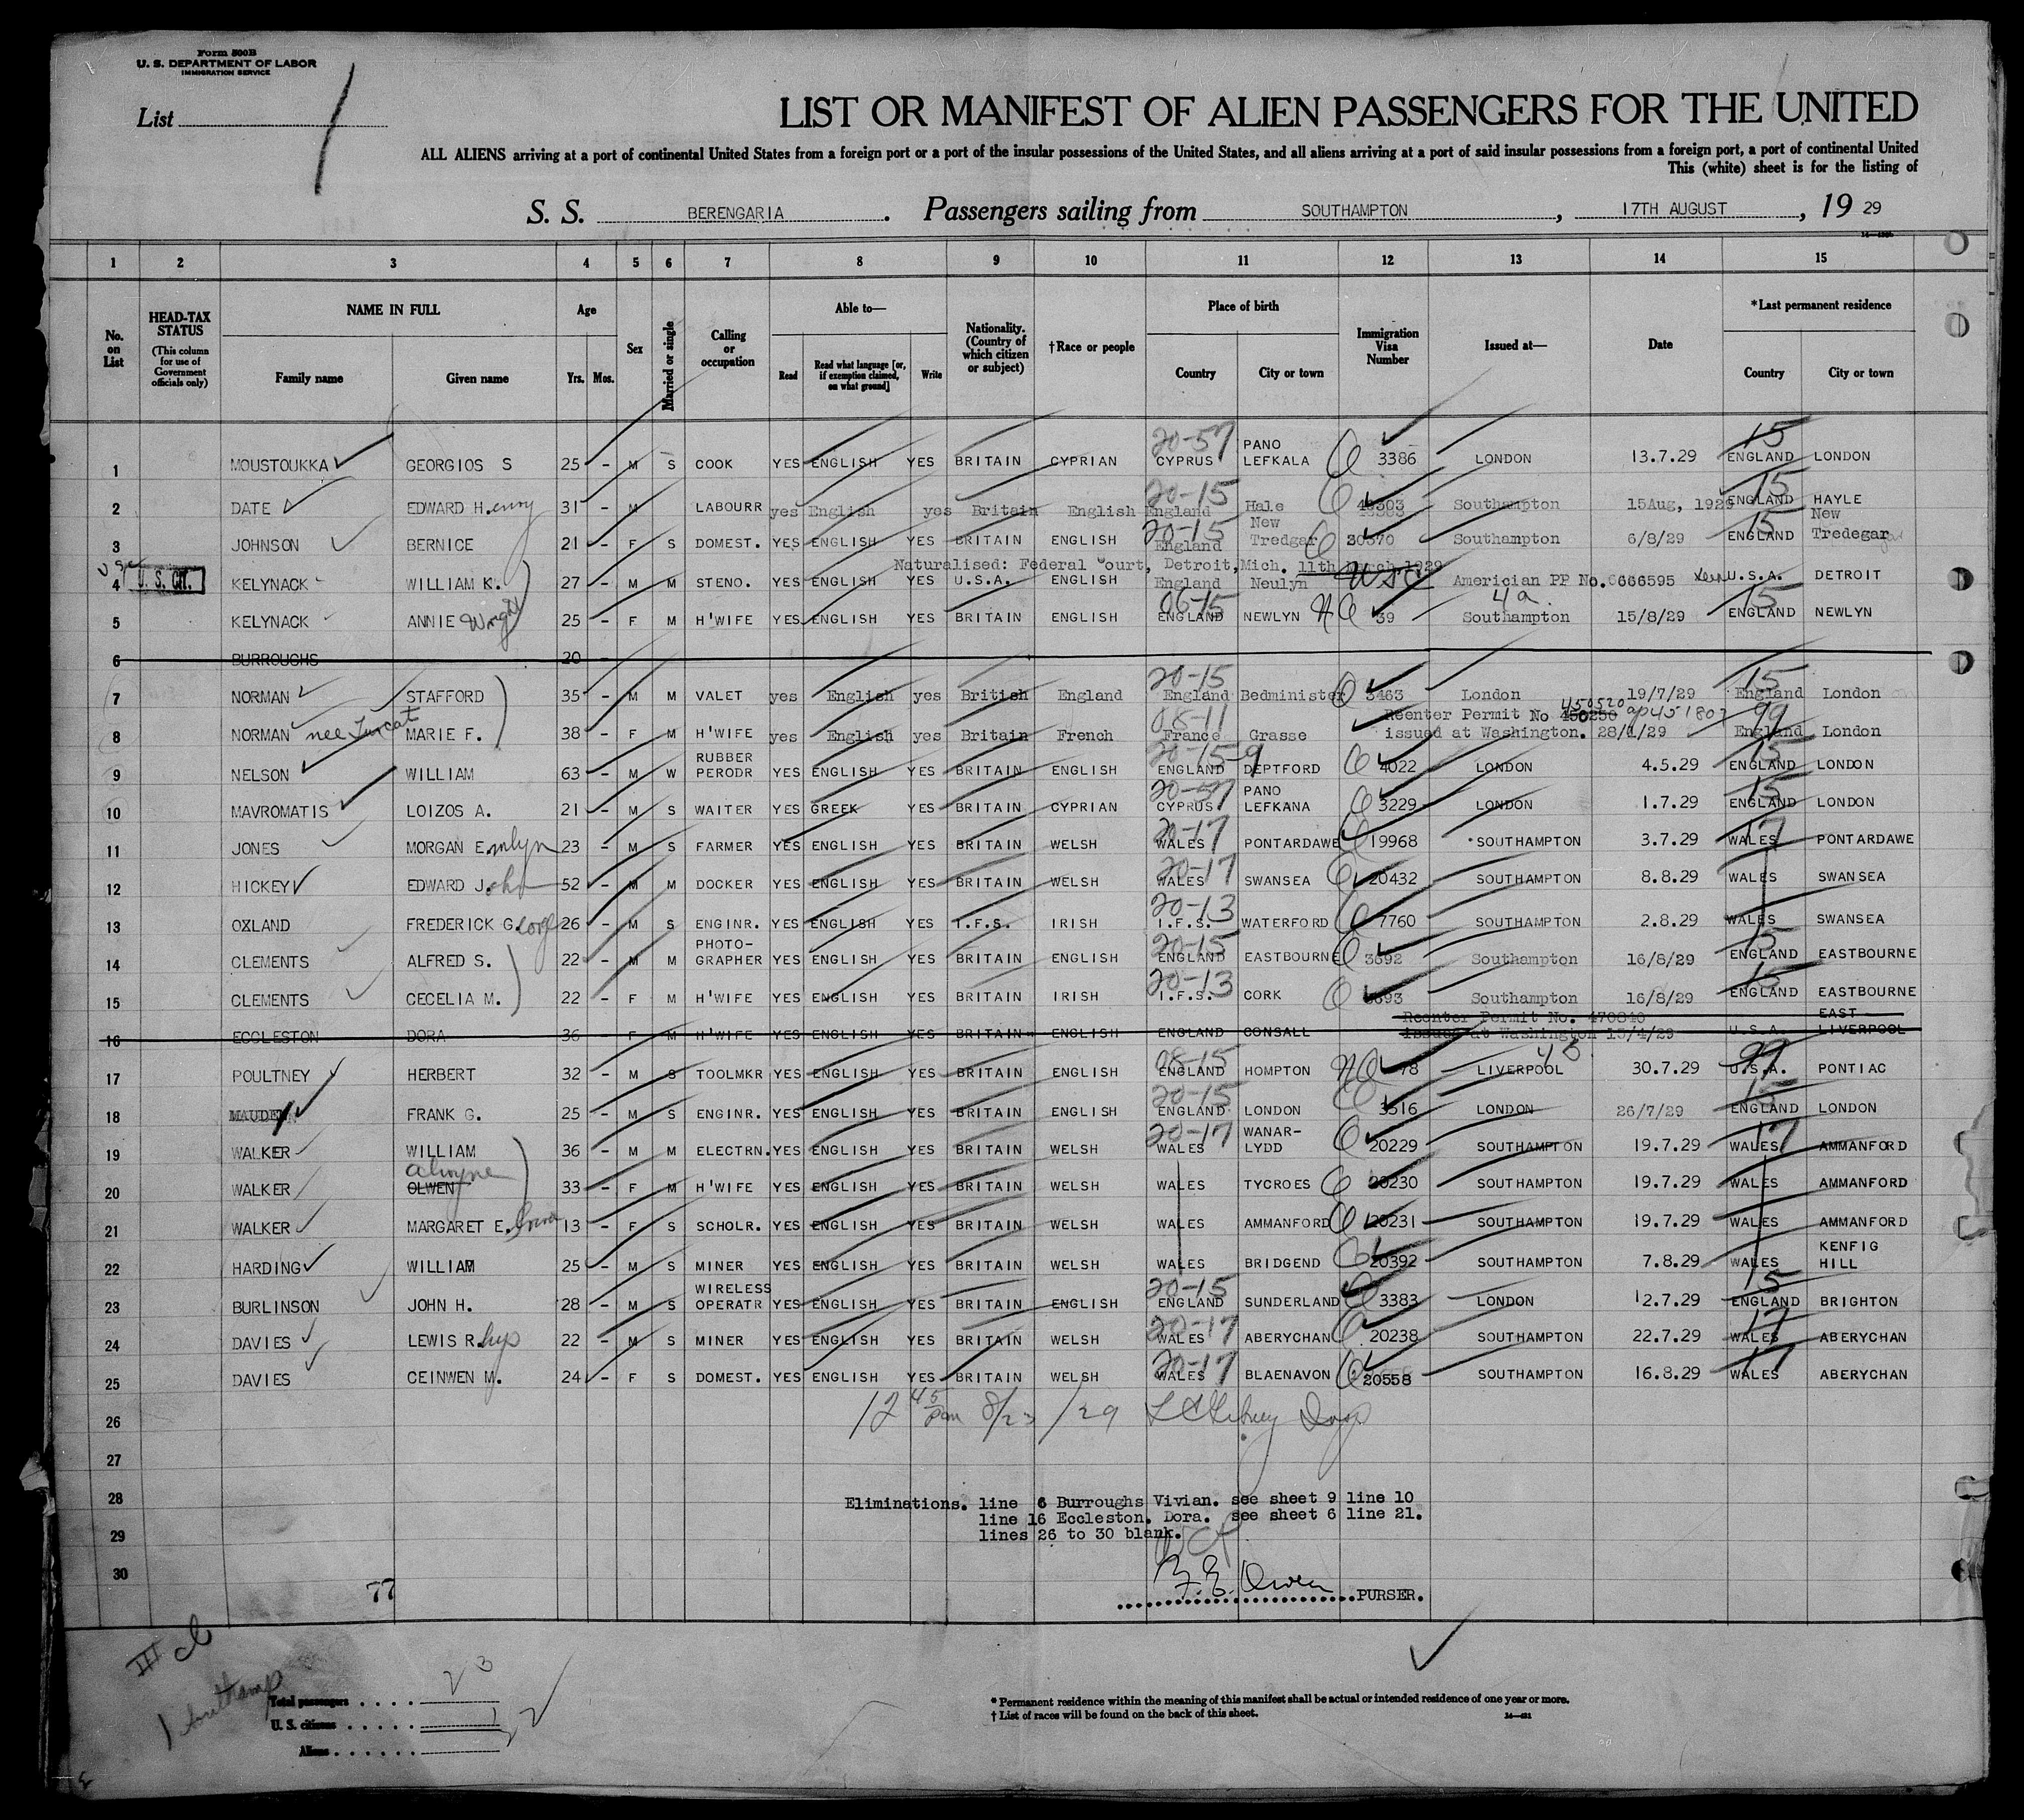 Form 500B
U. S. DEPARTMENT OF LABOR
IMMIGRATION SERVICE
List
LIST OR MANIFEST OF ALIEN PASSENGERS FOR THE UNITED
ALL ALIENS arriving at a port of continental United States from a foreign port or a port of the insular possessions of the United States, and all aliens arriving at a port of said insular possessions from a foreign port, a port of continental United
This (white) sheet is for the listing of
S. S. BERENGARIA. Passengers sailing from SOUTHAMPTON, 17TH AUGUST, 19 29
1 2 3 4 5 6 7 8 9 10 11 12 13 14 15
No. on List
HEAD-TAX STATUS
(This column for use of Government officials only)
NAME IN FULL
Family name Given name
Age
Yrs. Mos.
Sex
Married or single
Calling or occupation
Able to—
Read Read what language [or, if exemption claimed, on what ground] Write
Nationality. (Country of which citizen or subject)
†Race or people
Place of birth
Country City or town
Immigration Visa Number
Issued at—
Date
*Last permanent residence
Country City or town
1 MOUSTOUKKA GEORGIOS S 25 - M S COOK YES ENGLISH YES BRITAIN CYPRIAN 20-57 CYPRUS PANO LEFKALA 3386 LONDON 13.7.29 15 ENGLAND LONDON
2 DATE EDWARD Henry 31 - M LABOURR yes English yes Britain English 20-15 England Hale Southampton 15Aug, 1929 15 ENGLAND HAYLE
3 JOHNSON BERNICE 21 - F S DOMEST. YES ENGLISH YES BRITAIN ENGLISH 20-15 England New Tredgar 20370 Southampton 6/8/29 15 ENGLAND New Tredegar
Naturalised: Federal Court, Detroit, Mich. 11th March 1929
4 U. S. CIT. KELYNACK WILLIAM K. 27 - M M STENO. YES ENGLISH YES U.S.A. ENGLISH England Neulyn USC Americian PP No. 666595 U.S.A. DETROIT
5 KELYNACK ANNIE Wright 25 - F M H'WIFE YES ENGLISH YES BRITAIN ENGLISH 06-15 ENGLAND NEWLYN NQ 39 4a. Southampton 15/8/29 15 ENGLAND NEWLYN
6 BURROUGHS 20 -
7 NORMAN STAFFORD 35 - M M VALET yes English yes British England 20-15 England Bedminister 3463 London 19/7/29 15 England London
8 NORMAN nee Turcat MARIE F. 38 - F M H'WIFE yes English yes Britain French 08-11 France Grasse Reenter Permit No 450250 450520 issued at Washington. 28/1/29 99 England London
9 NELSON WILLIAM 63 - M W RUBBER PERODR YES ENGLISH YES BRITAIN ENGLISH 20-15-9 ENGLAND DEPTFORD 4022 LONDON 4.5.29 15 ENGLAND LONDON
10 MAVROMATIS LOIZOS A. 21 - M S WAITER YES GREEK YES BRITAIN CYPRIAN 20-57 CYPRUS PANO LEFKANA 3229 LONDON 1.7.29 15 ENGLAND LONDON
11 JONES MORGAN Emlyn 23 - M S FARMER YES ENGLISH YES BRITAIN WELSH 20-17 WALES PONTARDAWE 19968 SOUTHAMPTON 3.7.29 17 WALES PONTARDAWE
12 HICKEY EDWARD John 52 - M M DOCKER YES ENGLISH YES BRITAIN WELSH 20-17 WALES SWANSEA 20432 SOUTHAMPTON 8.8.29 WALES SWANSEA
13 OXLAND FREDERICK George 26 - M S ENGINR. YES ENGLISH YES I.F.S. IRISH 20-13 I.F.S. WATERFORD 7760 SOUTHAMPTON 2.8.29 WALES SWANSEA
14 CLEMENTS ALFRED S. 22 - M M PHOTO-GRAPHER YES ENGLISH YES BRITAIN ENGLISH 20-15 ENGLAND EASTBOURNE 3692 Southampton 16/8/29 15 ENGLAND EASTBOURNE
15 CLEMENTS CECELIA M. 22 - F M H'WIFE YES ENGLISH YES BRITAIN IRISH 20-13 I.F.S. CORK 3693 Southampton 16/8/29 15 ENGLAND EASTBOURNE
16 ECCLESTON DORA 36 - F M H'WIFE YES ENGLISH YES BRITAIN ENGLISH ENGLAND CONSALL Reenter Permit No. 470840 issued at Washington 13/4/29 U.S.A. EAST LIVERPOOL
17 POULTNEY HERBERT 32 - M S TOOLMKR YES ENGLISH YES BRITAIN ENGLISH 08-15 ENGLAND HOMPTON NQ 78 LIVERPOOL 30.7.29 99 U.S.A. PONTIAC
18 MAUDE FRANK G. 25 - M S ENGINR. YES ENGLISH YES BRITAIN ENGLISH 20-15 ENGLAND LONDON 3516 LONDON 26/7/29 15 ENGLAND LONDON
19 WALKER WILLIAM 36 - M M ELECTRN. YES ENGLISH YES BRITAIN WELSH 20-17 WALES WANAR-LYDD 20229 SOUTHAMPTON 19.7.29 17 WALES AMMANFORD
20 WALKER OLWEN Alwyne 33 - F M H'WIFE YES ENGLISH YES BRITAIN WELSH WALES TYCROES 20230 SOUTHAMPTON 19.7.29 WALES AMMANFORD
21 WALKER MARGARET E. 13 - F S SCHOLR. YES ENGLISH YES BRITAIN WELSH WALES AMMANFORD 20231 SOUTHAMPTON 19.7.29 WALES AMMANFORD
22 HARDING WILLIAM 25 - M S MINER YES ENGLISH YES BRITAIN WELSH WALES BRIDGEND 20392 SOUTHAMPTON 7.8.29 WALES KENFIG HILL
23 BURLINSON JOHN H. 28 - M S WIRELESS OPERATR YES ENGLISH YES BRITAIN ENGLISH 20-15 ENGLAND SUNDERLAND 3383 LONDON 12.7.29 15 ENGLAND BRIGHTON
24 DAVIES LEWIS R. 22 - M S MINER YES ENGLISH YES BRITAIN WELSH 20-17 WALES ABERYCHAN 20238 SOUTHAMPTON 22.7.29 17 WALES ABERYCHAN
25 DAVIES CEINWEN M. 24 - F S DOMEST. YES ENGLISH YES BRITAIN WELSH 20-17 WALES BLAENAVON 20558 SOUTHAMPTON 16.8.29 17 WALES ABERYCHAN
26 12 45 pm 8/23/29
27
28 Eliminations. line 6 Burroughs Vivian. see sheet 9 line 10
line 16 Eccleston. Dora. see sheet 6 line 21.
29 lines 26 to 30 blank.
30
77
F. E. Owen PURSER.
III cl
Southamp
Total passengers 23
U. S. citizens 1
Aliens 22
* Permanent residence within the meaning of this manifest shall be actual or intended residence of one year or more.
† List of races will be found on the back of this sheet.